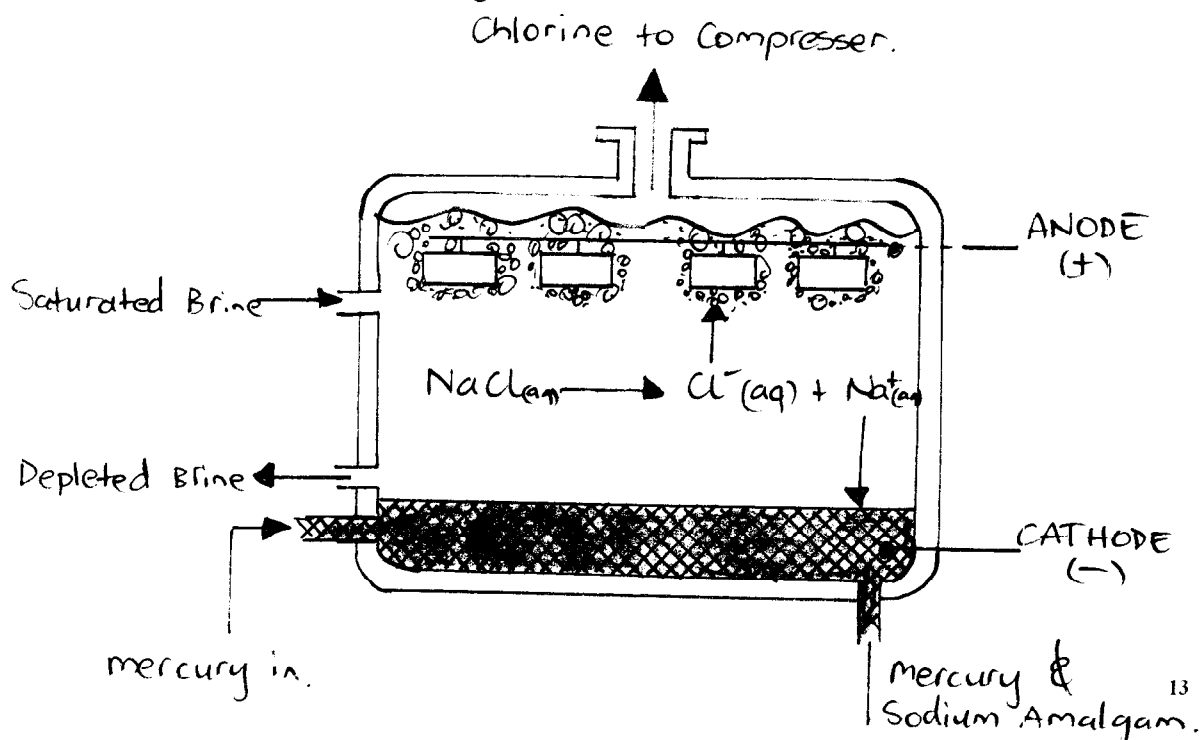 Chlorine to Compresser.
ANODE
(+)
Saturated Brine
NaCl(aq) → Cl⁻(aq) + Na⁺(aq)
Depleted Brine
CATHODE
(−)
mercury in.
Mercury &
Sodium Amalgam.
13